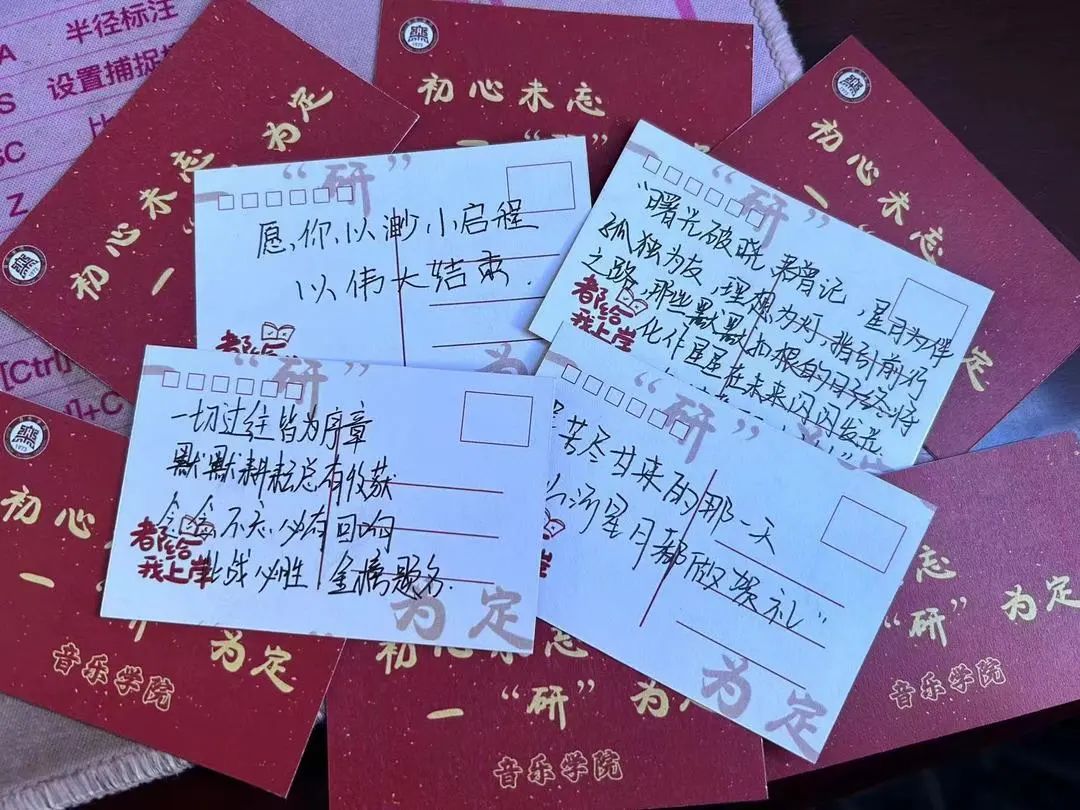 半径标注
A
S 设置捕捉
SC
Z
[Ctrl]
]+C
初心未忘
一“研”为定
初心未忘
一“
为定
初心未忘
一“
为定
“研”
愿你以渺小启程
以伟大结束.
都给
我上岸
“研”
“曙光破晓
星月为伴
孤独为友,理想为灯,指引前行
之路,那些默默扎根的日子终将
化作星星在未来闪闪发光
都给
我上岸
一“研”
一切过往皆为序章
默默耕耘总有收获
念念不忘必有回响
此战必胜 金榜题名.
都给
我上岸
为定
“研”为
苦尽甘来的那一天
河星月都做贺礼”
为定
初心
一“研”为定
音乐学院
初心未忘
一“研”为定
音乐学院
未忘
“研”为定
音乐学院